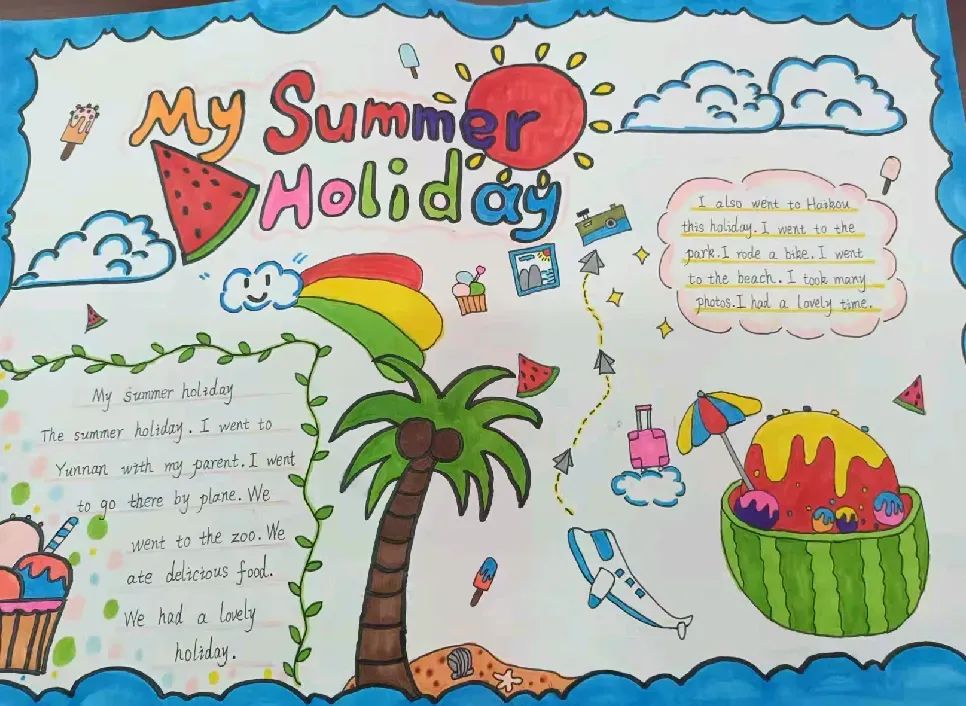 My Summer
Holiday
I also went to Haikou
this holiday. I went to the
park. I rode a bike. I went
to the beach. I took many
photos. I had a lovely time.
My summer holiday
The summer holiday. I went to
Yunnan with my parent. I went
to go there by plane. We
went to the zoo. We
ate delicious food.
We had a lovely
holiday.